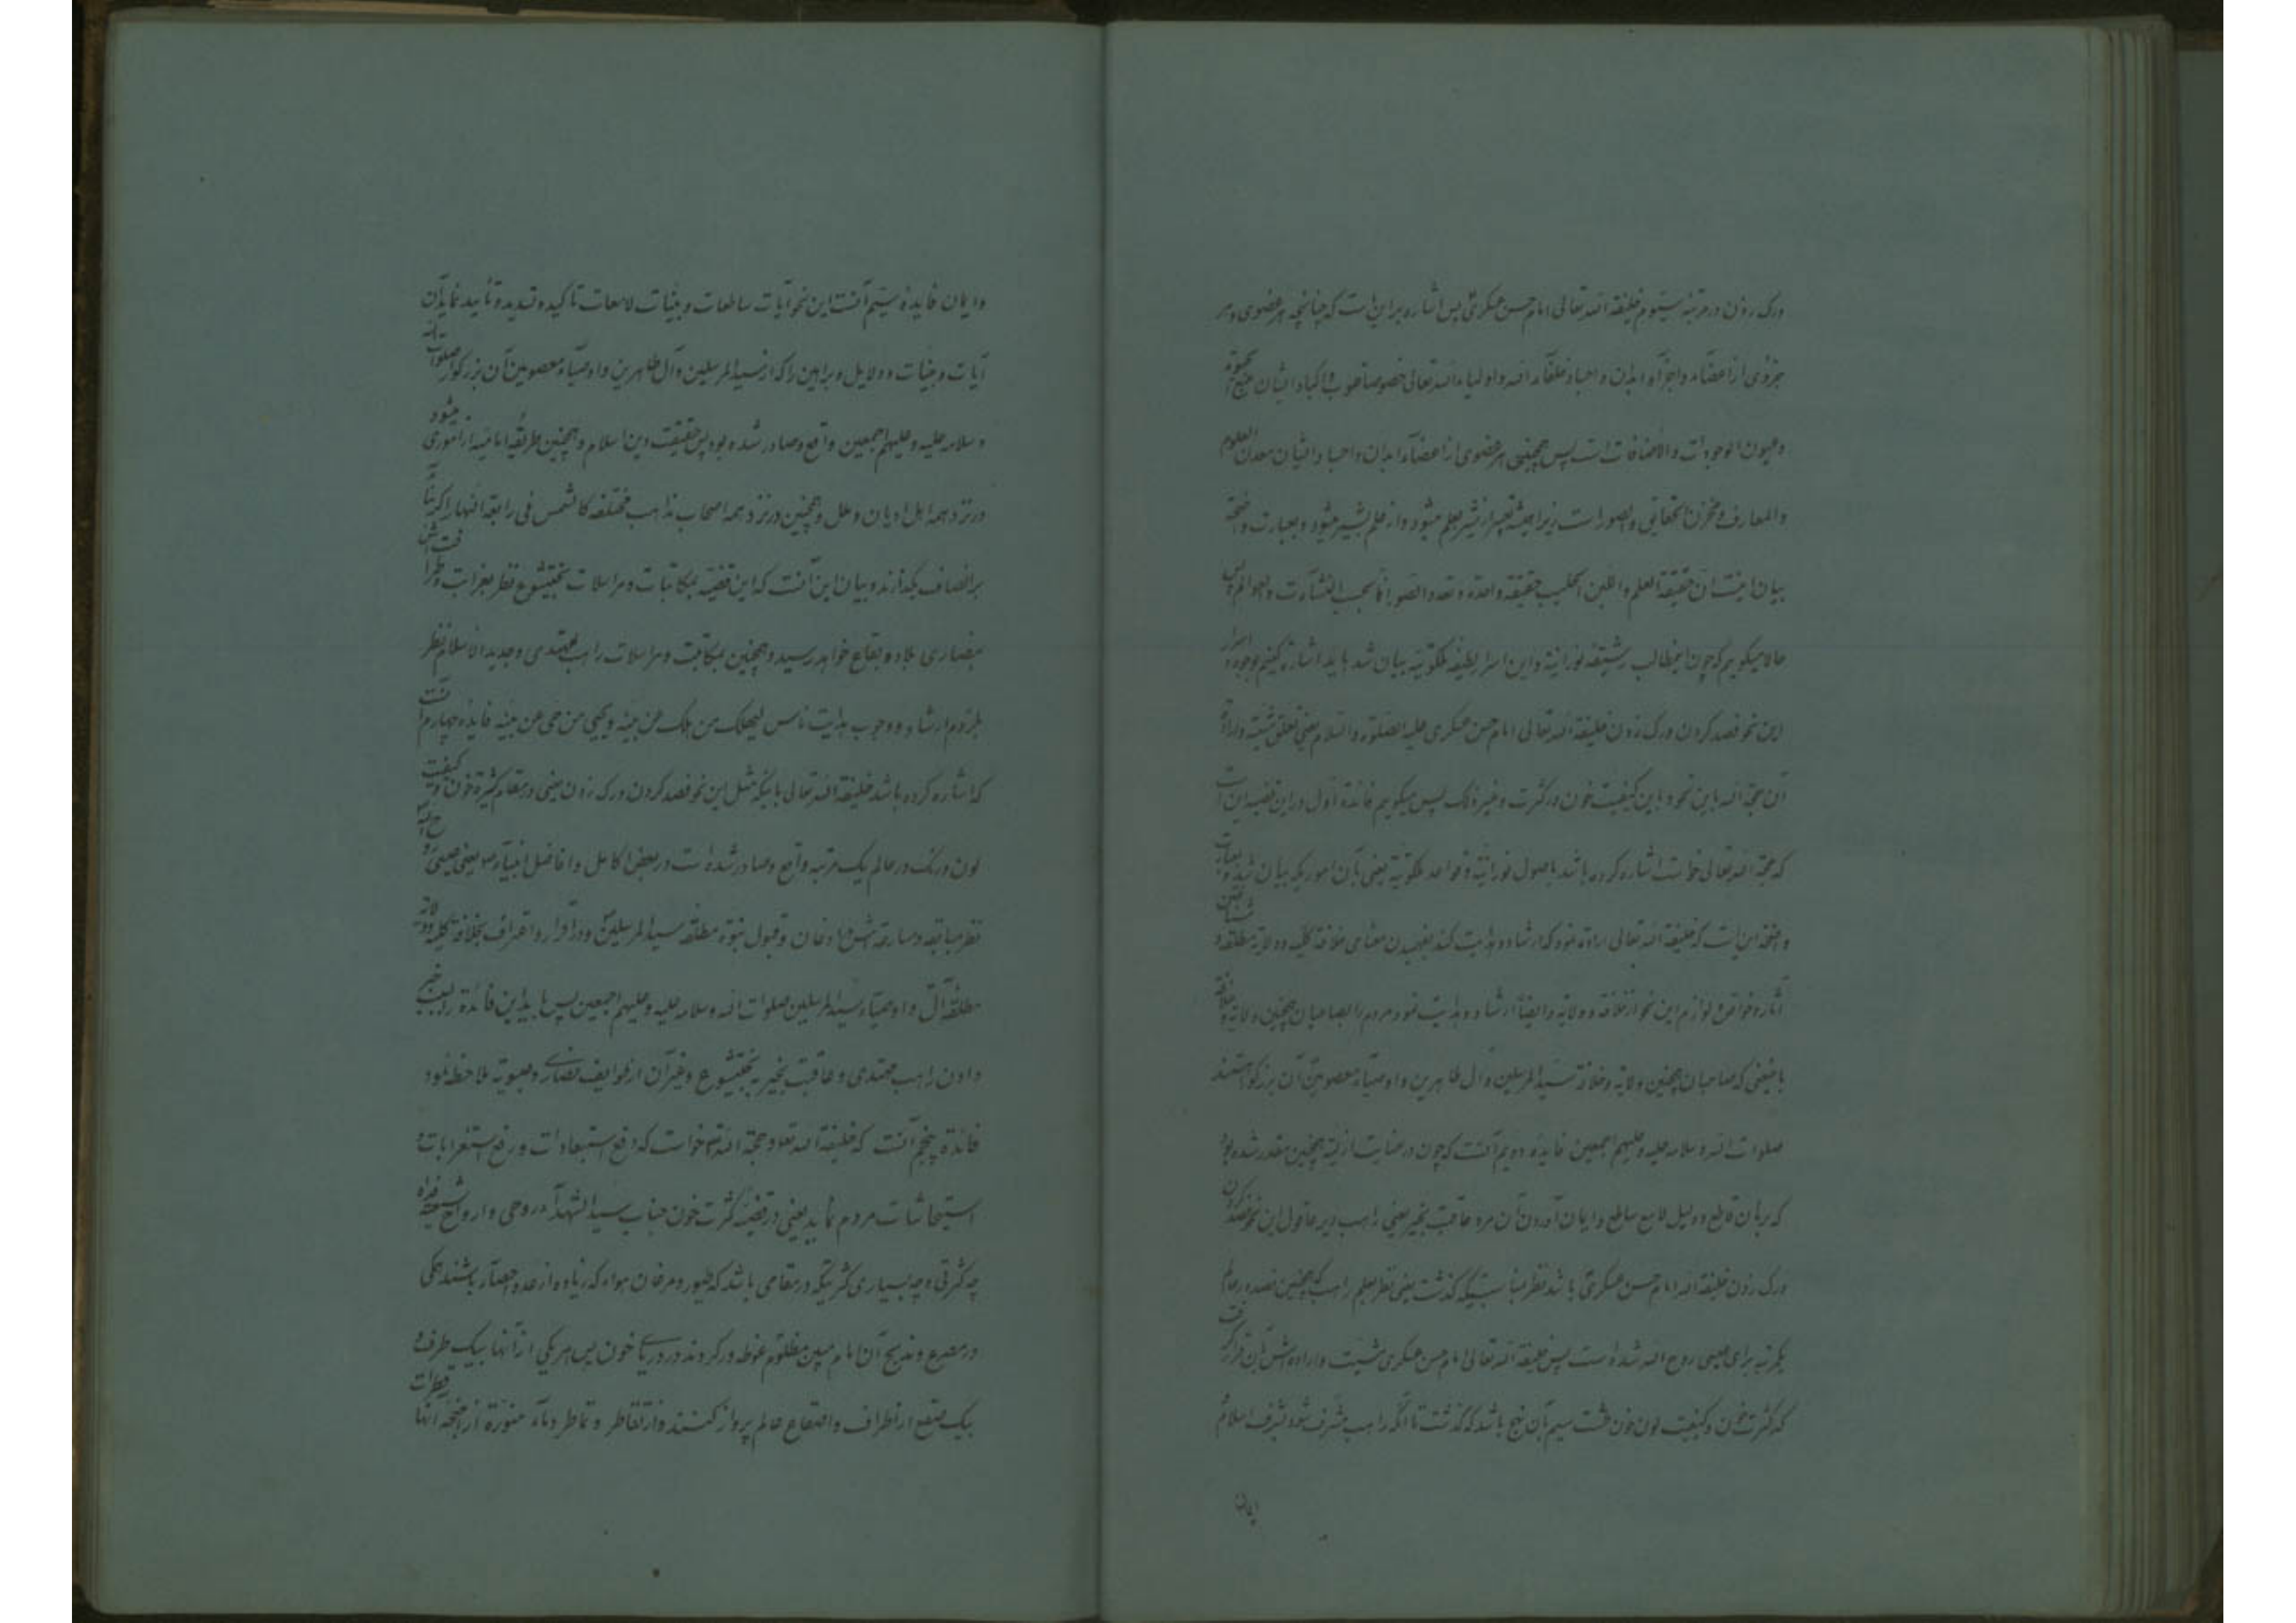 ورک زدن در مرتبه سیّوم خلیفة الله تعالی امام حسن عسکری پس اشاره بر این است که چنانچه هر عضوی و هر
جزوی از اعضاء و اجزاء ابدان و اجساد خلفاء الله و اولیاء الله تعالی خصوصا قلوب و اکباد ایشان منبع الحیوة
و عیون الوجودات والافاضات است پس همچنین هر عضوی از اعضاء ابدان و اجساد ایشان معدن العلوم
والمعارف و مخزن الحقایق والصور است زیرا همیشه تعبیر از شیر بعلم میشود و از علم بشیر میشود و بعبارت واضحة
بیان اینست ان حقیقة العلم واللبن الحلیب حقیقة واحدة و تعدد الصور انما بحسب النشآت والعوالم و
حالا میگویم که چون این مطالب رشیقه نورانیة و این اسرار لطیفه ملکوتیه بیان شد باید اشاره کنیم بوجوه و اسرار
این نحو فصد کردن و رک زدن خلیفة الله تعالی امام حسن عسکری علیه الصلوة والسلام یعنی تعلق مشیة و ارادة
آن حجة الله باین نحو و باین کیفیت خون در کثرت و غیر ذلک پس میگویم فائدة اول در این قضیه این است
که حجة الله تعالی خواست اشاره کرده باشد باصول نورانیة و قواعد ملکوتیة یعنی بآن امور یکه بیان شد و بعبارت
واضحه این است که خلیفة الله تعالی اراده نمود که ارشاد و هدایت کند بفهمیدن معنای خلافة کلیه و ولایة مطلقه و
آثار و خواص و لوازم این نحو از خلافة و ولایة و ایضا ارشاد و هدایت نمود مردم را بصاحبان همچنین ولایة و خلافة
بامعنی که صاحبان همچنین ولایة و خلافة سید المرسلین و آل طاهرین و اوصیاء معصومین آن بزرگوار هستند
صلوات الله و سلامه علیه و علیهم اجمعین فایده دویم آنست که چون در عنایت ازلیة همچنین مقدر شده بود
که برهان قاطع و دلیل لامع ساطع و ایمان آوردن آن مرد عاقبت بخیر یعنی راهب دیر عاقول این نحو فصد کردن
ورک زدن خلیفة الله امام حسن عسکری باشد نظر بمناسبتیکه گذشت یعنی نظر بعلم راهب که همچنین فصد در عالم
یکمرتبه برای عیسی روح الله شده است پس خلیفة الله تعالی امام حسن عسکری مشیت و اراده اش بآن قرار گرفت
که کثرت خون و کیفیت لون خون طشت سیم بآن نهج باشد که گذشت تا آنکه راهب مشرف شود بشرف اسلام
ایمان
و ایمان فایده سیّم آنست این نحو آیات ساطعات و بینات لامعات تاکید و تسدید و تأیید نماید آن
آیات و بینات و دلایل و براهین را که از سید المرسلین و آل طاهرین و اوصیاء معصومین آن بزرگوار صلوات الله
و سلامه علیه و علیهم اجمعین واقع و صادر شده بود پس حقیقت دین اسلام و همچنین طریقه امامیه از اموری میشود
در نزد همه اهل ادیان و ملل و همچنین در نزد همه اصحاب مذاهب مختلفه کالشمس فی رابعة النهار اگر بنا
بر انصاف بگذارند و بیان این آنست که این قضیه بمکاتبات و مراسلات بختیشوع نظر بغرابت و
بنصاری بلاد و بقاع خواهد رسید و همچنین بمکاتبت و مراسلات راهب مهتدی و جدید الاسلام نظر
بلزوم ارشاد و وجوب هدایت ناس لیهلک من هلک عن بینه و یحیی من حی عن بینه فایده چهارم آنست
که اشاره کرده باشد خلیفة الله تعالی باینکه مثل این نحو فصد کردن و رک زدن یعنی در مقام کثرة خون و کیفیت
لون و رنک در عالم یک مرتبه واقع و صادر شده است در بعض اکامل و افاضل انبیاء یعنی عیسی روح الله
نظر بسابقه و مسارعه اش باذعان و قبول نبوّة مطلقه سید المرسلین و در اقرار و اعتراف بخلافة کلیه و ولایة
مطلقه آل و اوصیاء سید المرسلین صلوات الله و سلامه علیه و علیهم اجمعین پس باید این فائدة را بسبب خبر
دادن راهب مهتدی و عاقبت بخیر به بختیشوع و غیر آن از طوایف نصاری و عیسویه ملاحظه نمود
فائدة پنجم آنست که خلیفة الله تعالی و حجة الله خواست که دفع استبعادات و رفع استغرابات و
استیحاشات مردم نماید یعنی در قضیه کثرت خون جناب سید الشهداء روحی و ارواح شیعته فداه
چه کثرتی و چه بسیاری کثرتیکه در مقامی باشد که طیور و مرغان هواء که زیاده از عد و احصاء باشند همکی
در مصرع و مذبح آن امام مبین مظلوم غوطه ور کردند در دریای خون پس هر یکی از آنها بیک طرف و
بیک صقع از اطراف و اصقاع عالم پرواز کنند و از تقاطر و تماطر دماء منوّرة از اجنحه آنها قطرات